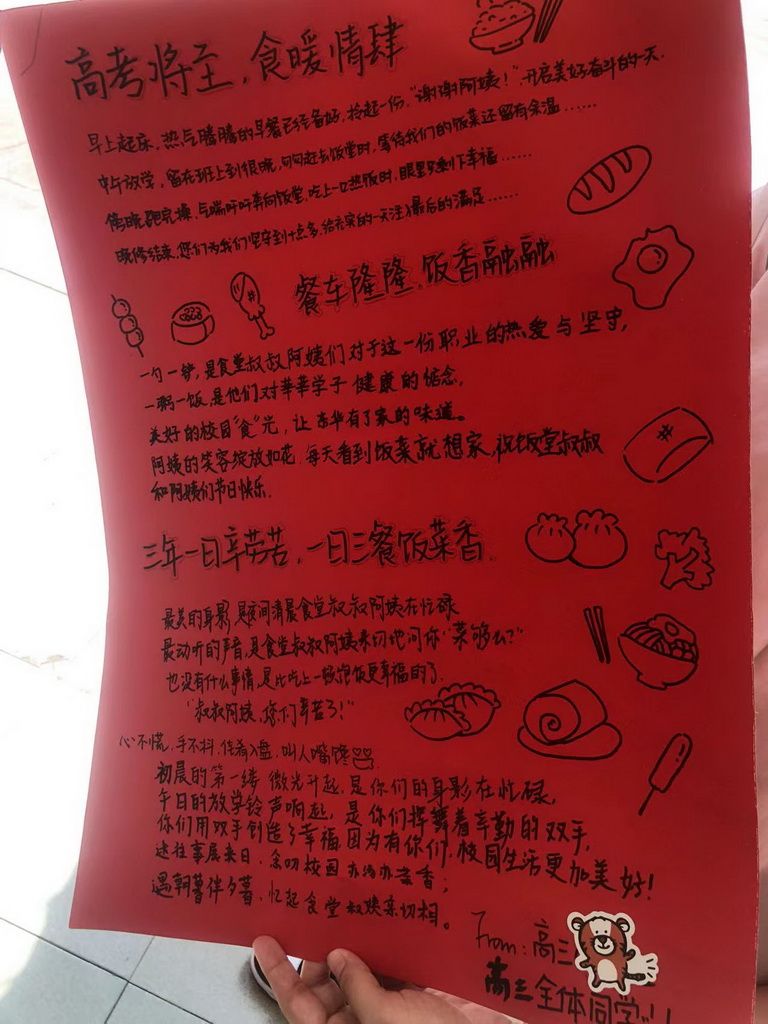 高考将至，食暖情肆
早上起床，热气腾腾的早餐已经备好，拎起一份，“谢谢阿姨！”，开启美好奋斗的一天。
中午放学，留在班上到很晚，匆匆赶去饭堂时，等待我们的饭菜还留有余温……
傍晚跑完操，气喘吁吁奔向饭堂，吃上一口热饭时，眼里只剩下幸福……
晚修结束，您们为我们坚守到十点多，给充实的一天注入最后的满足……
餐车隆隆，饭香融融
一勺一铲，是食堂叔叔阿姨们对于这一份职业的热爱与坚守，
一粥一饭，是他们对莘莘学子健康的惦念，
美好的校园“食”光，让东华有了家的味道。
阿姨的笑容绽放如花，每天看到饭菜就想家，祝饭堂叔叔
和阿姨们节日快乐.
三年一日辛劳苦，一日三餐饭菜香.
最美的身影，是夜间清晨食堂叔叔阿姨在忙碌
最动听的声音，是食堂叔叔阿姨亲切地问你“菜够么？”
也没有什么事情，是比吃上一顿饱饭更幸福的了.
“叔叔阿姨，您们辛苦了！”
心不慌，手不抖，佳肴入盘，叫人嘴馋
初晨的第一缕微光升起，是你们的身影在忙碌，
午日的放学铃声响起，是你们挥舞着辛勤的双手，
你们用双手创造了幸福，因为有你们，校园生活更加美好！
述往事展来日，念吻校园 香；
遇朝暮伴夕暮，忆起食堂叔姨亲切相。
From：高三
高三全体同学